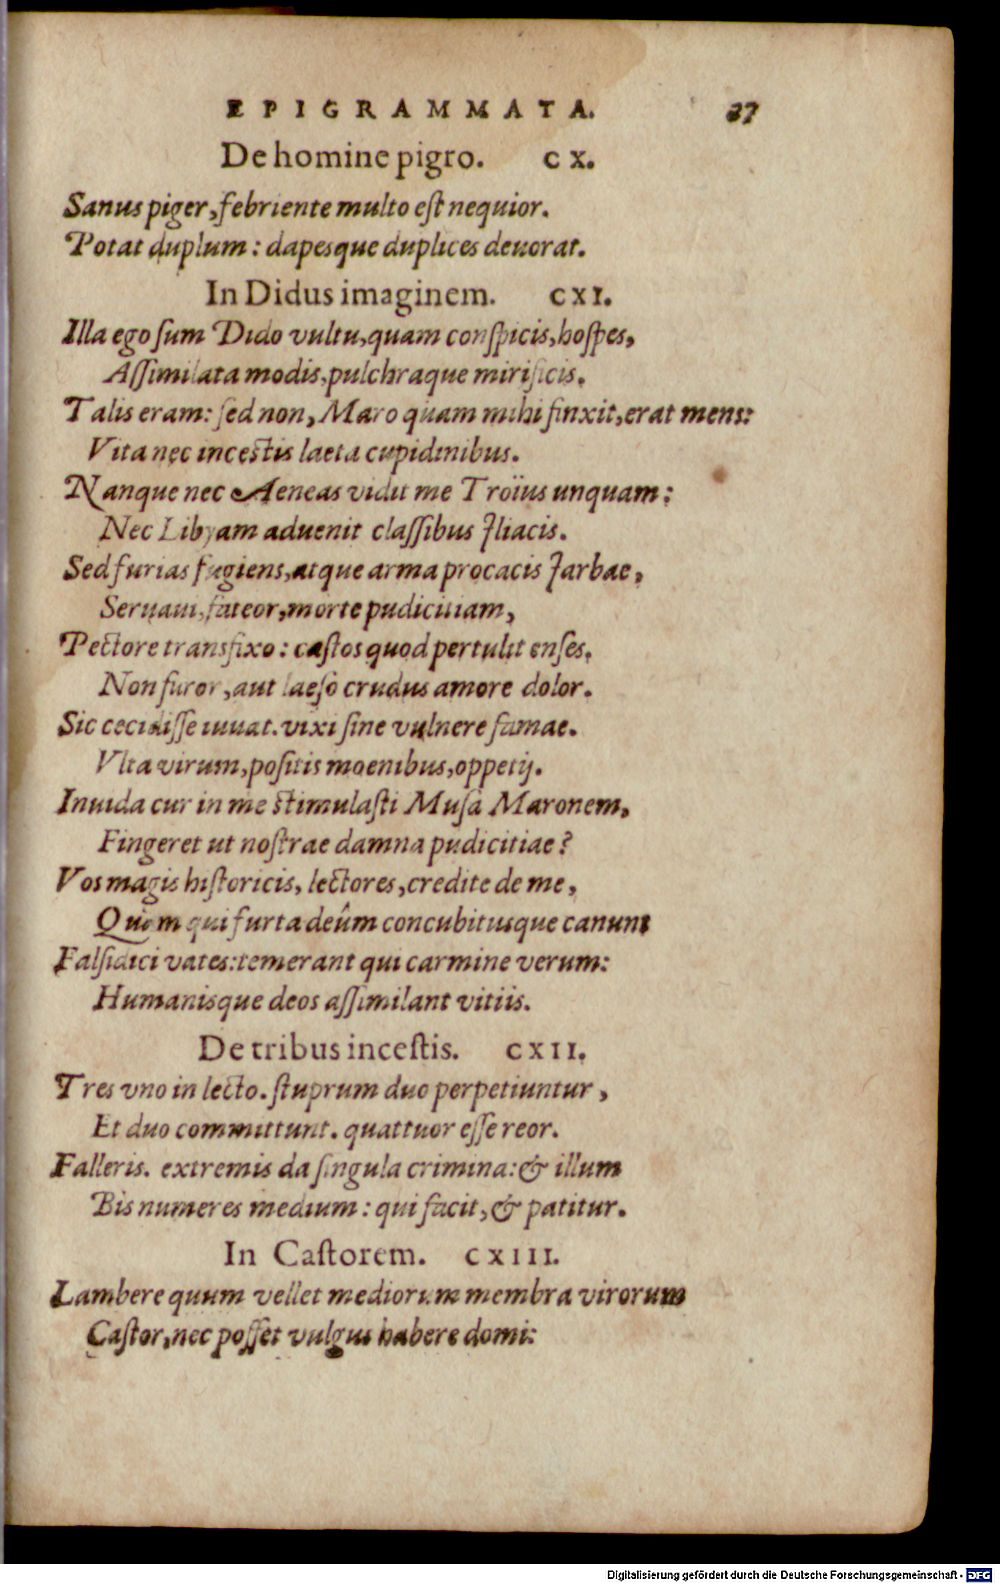 EPIGRAMMATA. 27
De homine pigro. CX.
Sanus piger, febriente multo est nequior.
Potat duplum: dapesque duplices deuorat.
In Didus imaginem. CXI.
Illa ego sum Dido vultu, quam conspicis, hospes,
Assimilata modis, pulchraque mirificis.
Talis eram: sed non, Maro quam mihi finxit, erat mens:
Vita nec incestis laeta cupidinibus.
Nanque nec Aeneas vidit me Troïus unquam:
Nec Libyam aduenit classibus Iliacis.
Sed furias fugiens, atque arma procacis Iarbae,
Seruaui, fateor, morte pudicitiam,
Pectore transfixo: castos quod pertulit enses.
Non furor, aut laeso crudus amore dolor.
Sic cecidisse iuuat. vixi sine vulnere famae.
Vlta virum, positis moenibus, oppetij.
Inuida cur in me stimulasti Musa Maronem,
Fingeret ut nostrae damna pudicitiae?
Vos magis historicis, lectores, credite de me,
Quàm qui furta deûm concubitusque canunt
Falsidici vates: temerant qui carmine verum:
Humanisque deos assimilant vitiis.
De tribus incestis. CXII.
Tres vno in lecto. stuprum duo perpetiuntur,
Et duo committunt. quattuor esse reor.
Falleris. extremis da singula crimina: & illum
Bis numeres medium: qui facit, & patitur.
In Castorem. CXIII.
Lambere quum vellet mediorum membra virorum
Castor, nec posset vulgus habere domi:
Digitalisierung gefördert durch die Deutsche Forschungsgemeinschaft - DFG